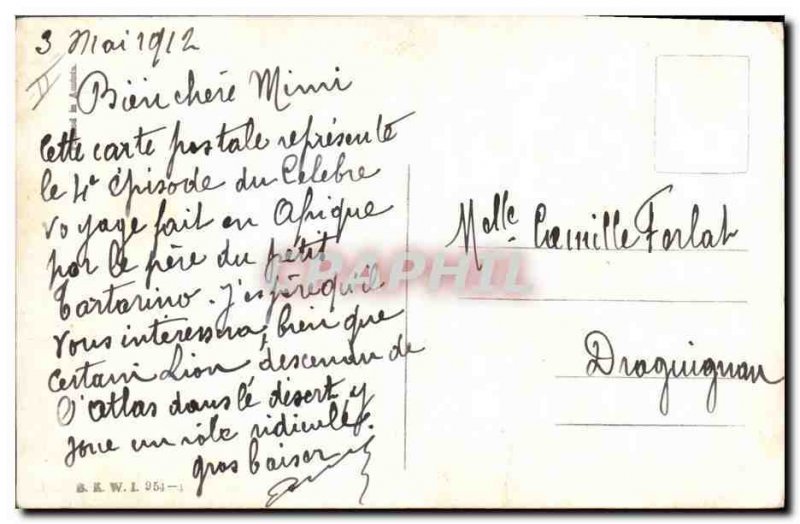 3 Mai 1912
II
Bien chère Mimi
Cette carte postale représente
le 4e épisode du Célèbre
voyage fait en Afrique
par le père du pétit
Tartarino. J'espère qu'il
vous interessera, bien que
certain Lion, descendu de
l'atlas dans le désert, y
joue un rôle ridicule.
gros baiser
Melle Camille Forlat
Draguignan
CPAPHIL
B. K. W. I. 951-4